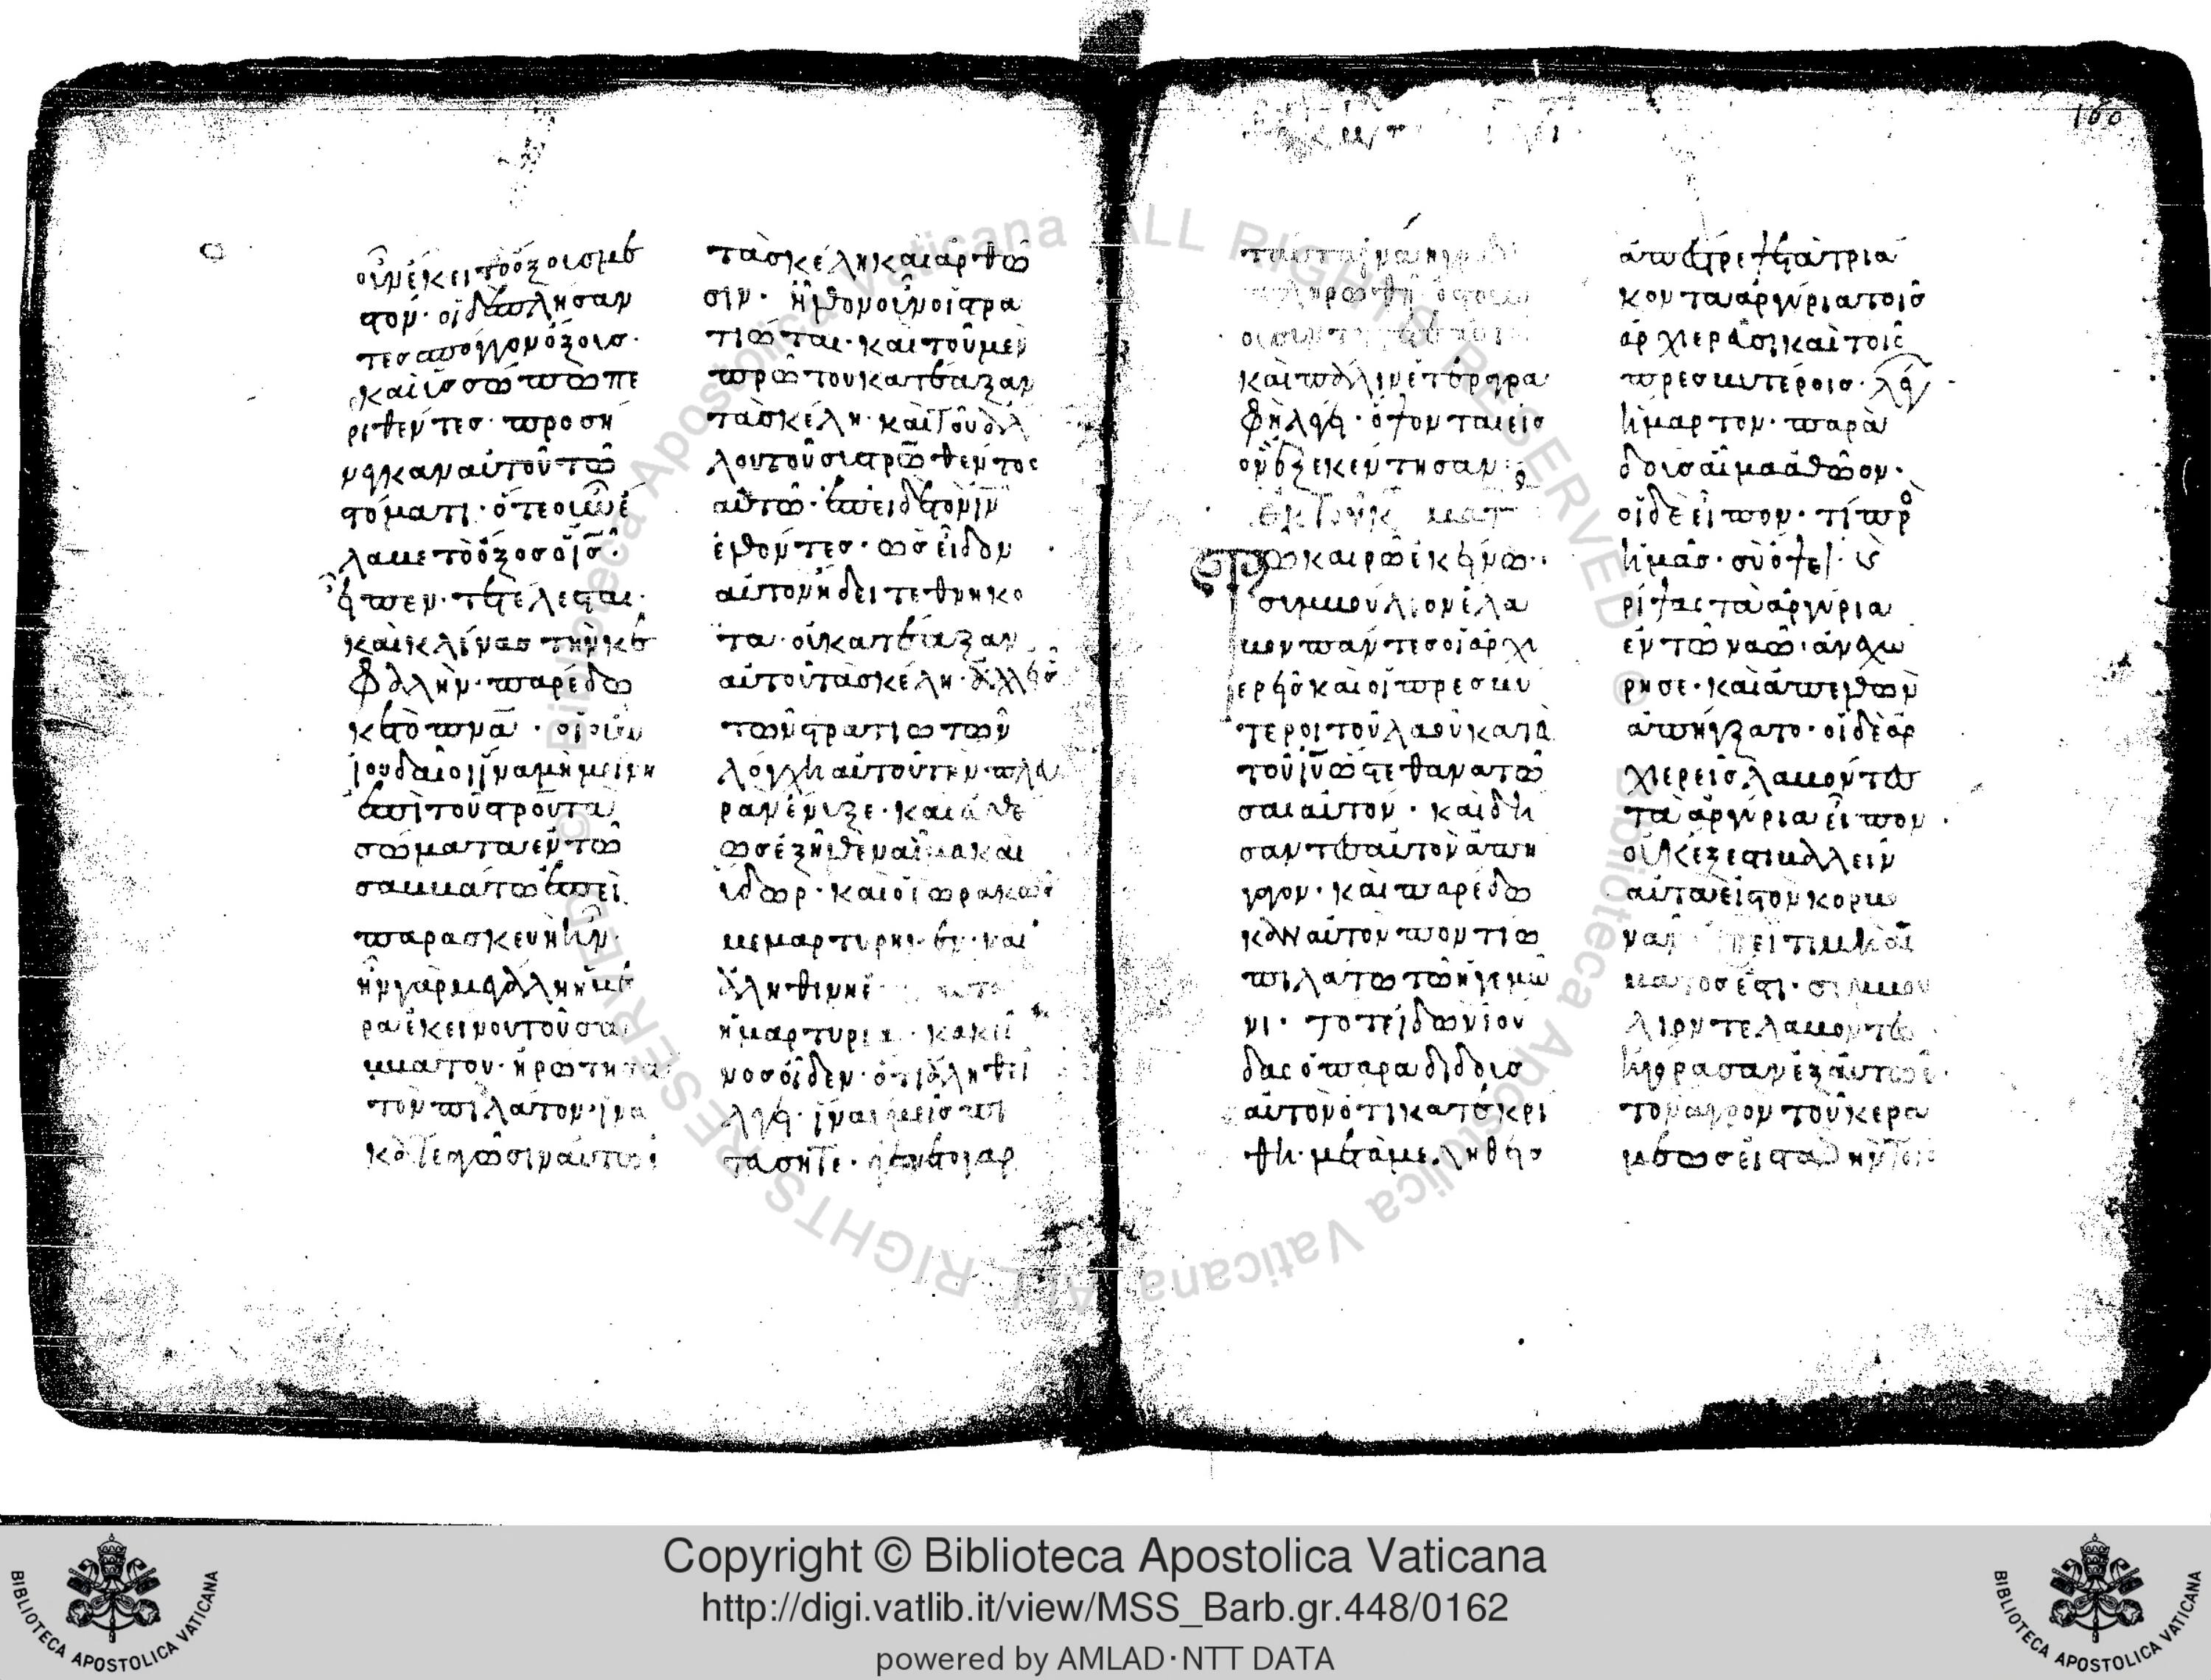 οὖν ἔκειτο ὄξους με
στόν· οἱ δὲ πλήσαν
τες σπόγγον ὄξους·
καὶ ὑσσώπω πε
ριθέντες· προσή
νεγκαν αὐτοῦ τῶ
στόματι· ὅτε οὖν ἔ
λαβε τὸ ὄξος ὁ ις·
εἶπεν· τετέλεσται·
καὶ κλίνας τὴν κε
φαλὴν· παρέδω
κε τὸ πνα· οἱ οὖν
ἰουδαῖοι ἵνα μὴ μείνη
ἐπὶ τοῦ στροῦ τὰ
σώματα ἐν τῶ
σαββάτω ἐπεὶ
παρασκευὴ ἦν·
ἦν γὰρ μεγάλη ἡ ἡμέ
ρα ἐκείνου τοῦ σα
ββάτου· ἠρώτησα
τὸν πιλᾶτον· ἵνα
κατεαγῶσιν αὐτῶν
τὰ σκέλη καὶ ἀρθῶ
σιν· ἦλθον οὖν οἱ στρα
τιῶται· καὶ τοῦ μὲν
πρώτου κατέαξαν
τὰ σκέλη· καὶ τοῦ ἄλ
λου τοῦ συστρωθέντος
αὐτῶ· ἐπεὶ δὲ τὸν ιν
ἐλθόντες· ὡς εἶδον
αὐτὸν ἤδει τεθνηκό
τα· οὐ κατέαξαν
αὐτοῦ τὰ σκέλη· ἀλλ' εἷς
τῶν στρατιωτῶν
λόγχη αὐτοῦ τὴν πλευ
ρὰν ἔνυξε· καὶ εὐθέ
ως ἐξῆλθεν αἷμα καὶ
ὕδωρ· καὶ ὁ ἑωρακὼς
μεμαρτύρηκεν· καὶ
ἀληθινὴ
ἡ μαρτυρία· κακεῖ
νος οἶδεν· ὅτι ἀληθῆ
λέγει· ἵνα ὑμεῖς πι
στεύσητε· ἐγένετο γὰρ
160
ταῦτα ἵνα ἡ γραφὴ
πληρωθῆ· ὀστοῦν
οὐ συντριβ
καὶ πάλιν ἑτέρα γρα
φὴ λέγει· ὄψονται εἰς
ὃν ἐξεκέντησαν:
ἐκ τοῦ κ ματ
Τῶ καιρῶ ἐκείνω·
συμβούλιον ἔλα
βον πάντες οἱ ἀρχι
ερεῖς καὶ οἱ πρεσβύ
τεροι τοῦ λαοῦ κατὰ
τοῦ ιυ ὥστε θανατῶ
σαι αὐτόν· καὶ δή
σαντες αὐτὸν ἀπή
γαγον· καὶ παρέδω
καν αὐτὸν ποντίω
πιλάτω τῶ ἡγεμό
νι· τότε ἰδὼν ἰού
δας ὁ παραδιδοὺς
αὐτὸν ὅτι κατεκρί
θη· μεταμεληθεὶς
ἀπέστρεψε τὰ τριά
κοντα ἀργύρια τοῖς
ἀρχιερεῦσι καὶ τοῖς
πρεσβυτέροις· λέγ
ἥμαρτον· παρα
δοὺς αἷμα ἀθῶον·
οἱ δὲ εἶπον· τί πρὸ
ἡμᾶς· σὺ ὄψει· κ
ρίψας τὰ ἀργύρια
ἐν τῶ ναῶ· ἀνεχώ
ρησε· καὶ ἀπελθὼν
ἀπήγξατο· οἱ δὲ ἀρ
χιερεῖς λαβόντες
τὰ ἀργύρια εἶπον·
οὐκ ἔξεστι βάλλειν
αὐτὰ εἰς τὸν κορβα
νᾶν ἐπεὶ τιμὴ αἵ
ματός ἐστι· συμβού
λιόν τε λαβόντες
ἠγόρασαν ἐξ αὐτῶν·
τὸν ἀγρὸν τοῦ κερα
μέως εἰς ταφὴν τοῖς
Copyright © Biblioteca Apostolica Vaticana
http://digi.vatlib.it/view/MSS_Barb.gr.448/0162
powered by AMLAD·NTT DATA
BIBLIOTECA APOSTOLICA VATICANA
BIBLIOTECA APOSTOLICA VATICANA